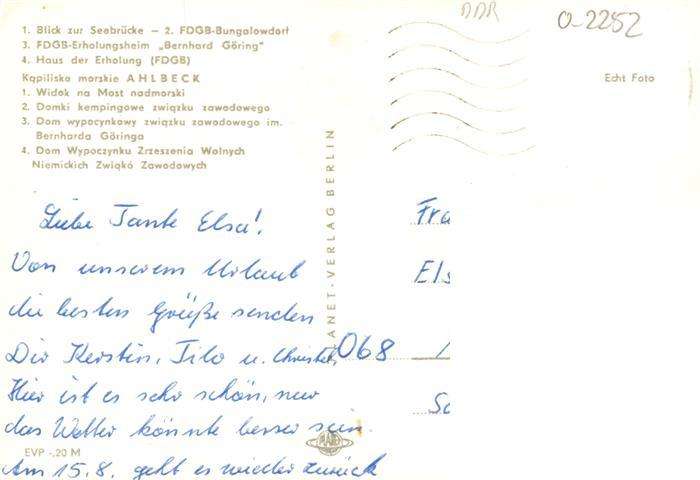 DDR
0-2252
1. Blick zur Seebrücke – 2. FDGB-Bungalowdorf
3. FDGB-Erholungsheim „Bernhard Göring"
4. Haus der Erholung (FDGB)
Kąpilisko morskie AHLBECK
1. Widok na Most nadmorski
2. Domki kempingowe związku zawodowego
3. Dom wypocynkowy związku zawodowego im.
Bernharda Göringa
4. Dom Wypoczynku Zrzeszenia Wolnych
Niemickich Zwiąkó Zawodowych
Echt Foto
ANET-VERLAG BERLIN
Liebe Tante Elsa!
Von unserem Urlaub
die besten Grüße senden
Dir Kerstin, Tilo u. Christel,
Hier ist es sehr schön, nur
das Wetter könnte besser sein.
Am 15.8. geht es wieder zurück
EVP -,20 M
PLANET
Fra
Els
068